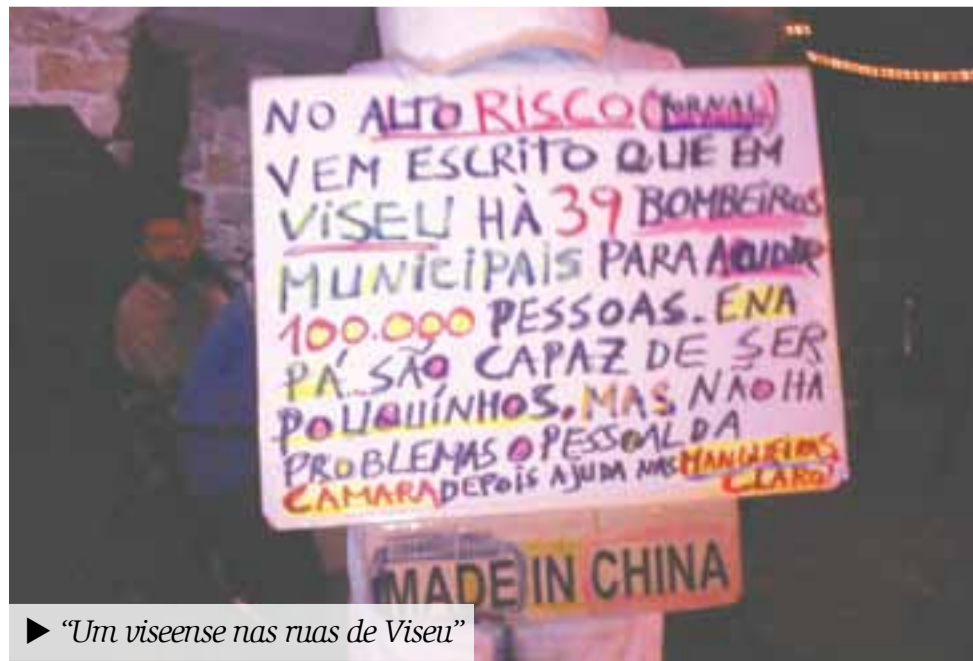 NO ALTO RISCO (JORNAL)
VEM ESCRITO QUE EM
VISEU HÀ 39 BOMBEIROS
MUNICIPAIS PARA ACUDIR
100.000 PESSOAS. ENA
PÁ SÃO CAPAZ DE SER
POUQUÍNHOS. MAS NÃO HÁ
PROBLEMAS O PESSOAL DA
CAMARA DEPOIS AJUDA NAS MANGUEIRAS
CLARO!
MADE IN CHINA
▶ “Um viseense nas ruas de Viseu”